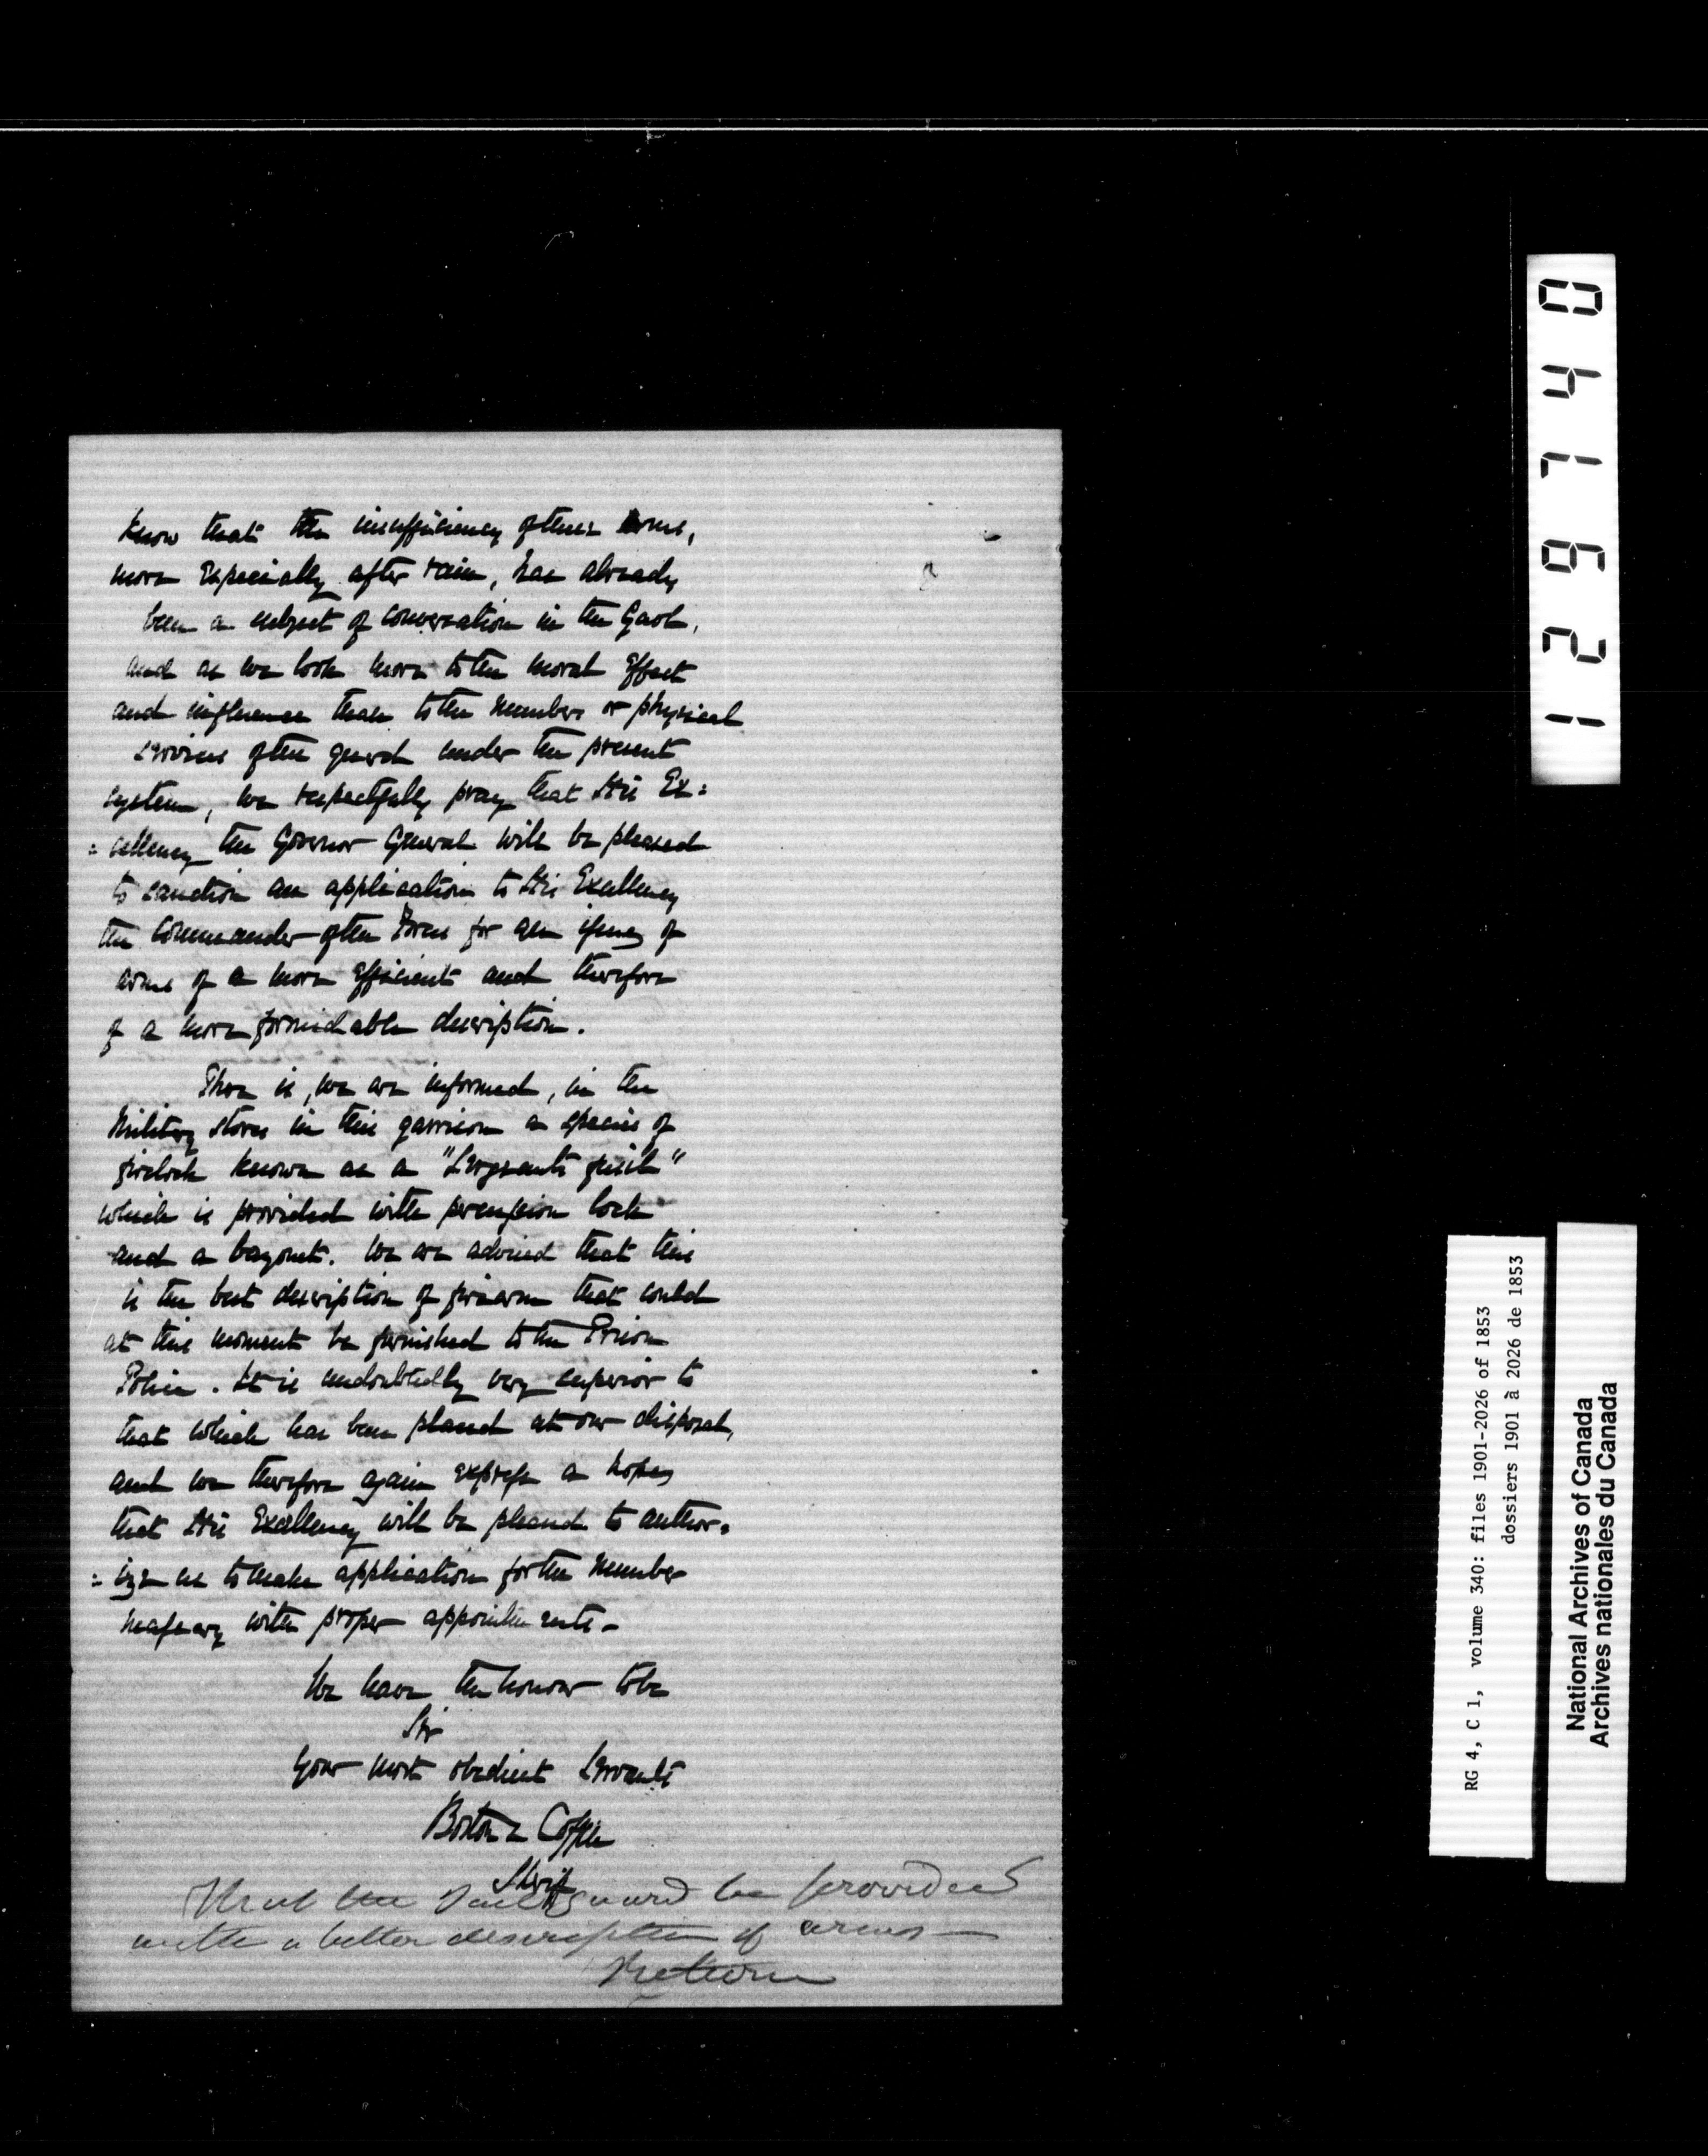 know that the insufficiency of these arms,
more especially after rain, has already
been a subject of conversation in the Gaol,
and as we look more to the moral effect
and influence than to the number or physical
services of the guard under the present
system, we respectfully pray that His Ex=
=cellency the Governor General will be pleased
to sanction an application to His Excellency
the Commander of the Forces for an issue of
arms of a more efficient and therefore
of a more formidable description.
There is, we are informed, in the
Military stores in this garrison a species of
firelock known as a "Sergeants fusil"
which is provided with percussion lock
and a bayonet. We are advised that this
is the best description of firearm that could
at this moment be furnished to the Prison
Police. It is undoubtedly very superior to
that which has been placed at our disposal,
and we therefore again express a hope
that His Excellency will be pleased to author=
=ize us to make application for the number
necessary with proper appointments -
We have the honour to be
Sir
Your most obedient Servants
Boston & Coffin
Sheriff
That the Jail Guard be provided
with a better description of arms —
Return
129740
RG 4, C 1, volume 340: files 1901-2026 of 1853
dossiers 1901 à 2026 de 1853
National Archives of Canada
Archives nationales du Canada